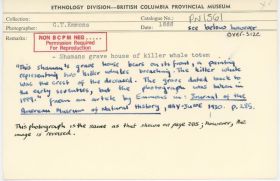 ETHNOLOGY DIVISION—BRITISH COLUMBIA PROVINCIAL MUSEUM
Collection:
Catalogue No.: PN 1561
Photographer: G.T.Emmons Date: 1888 see below however
Remarks:
NON BCPM NEG
Permission Required
For Reproduction
- Shamans grave house of killer whale totem
"This shaman's grave house bears on its front, a painting
representing two killer whales breaching. The killer whale
was the crest of the deceased. The grave dated back to
the early seventies, but the photograph was taken in
1888." From an article by Emmons in: Journal of the
American Museum of Natural History, MAY-JUNE 1930. p. 285.
This photograph is the same as that shown on page 285; however, the
image is reversed.